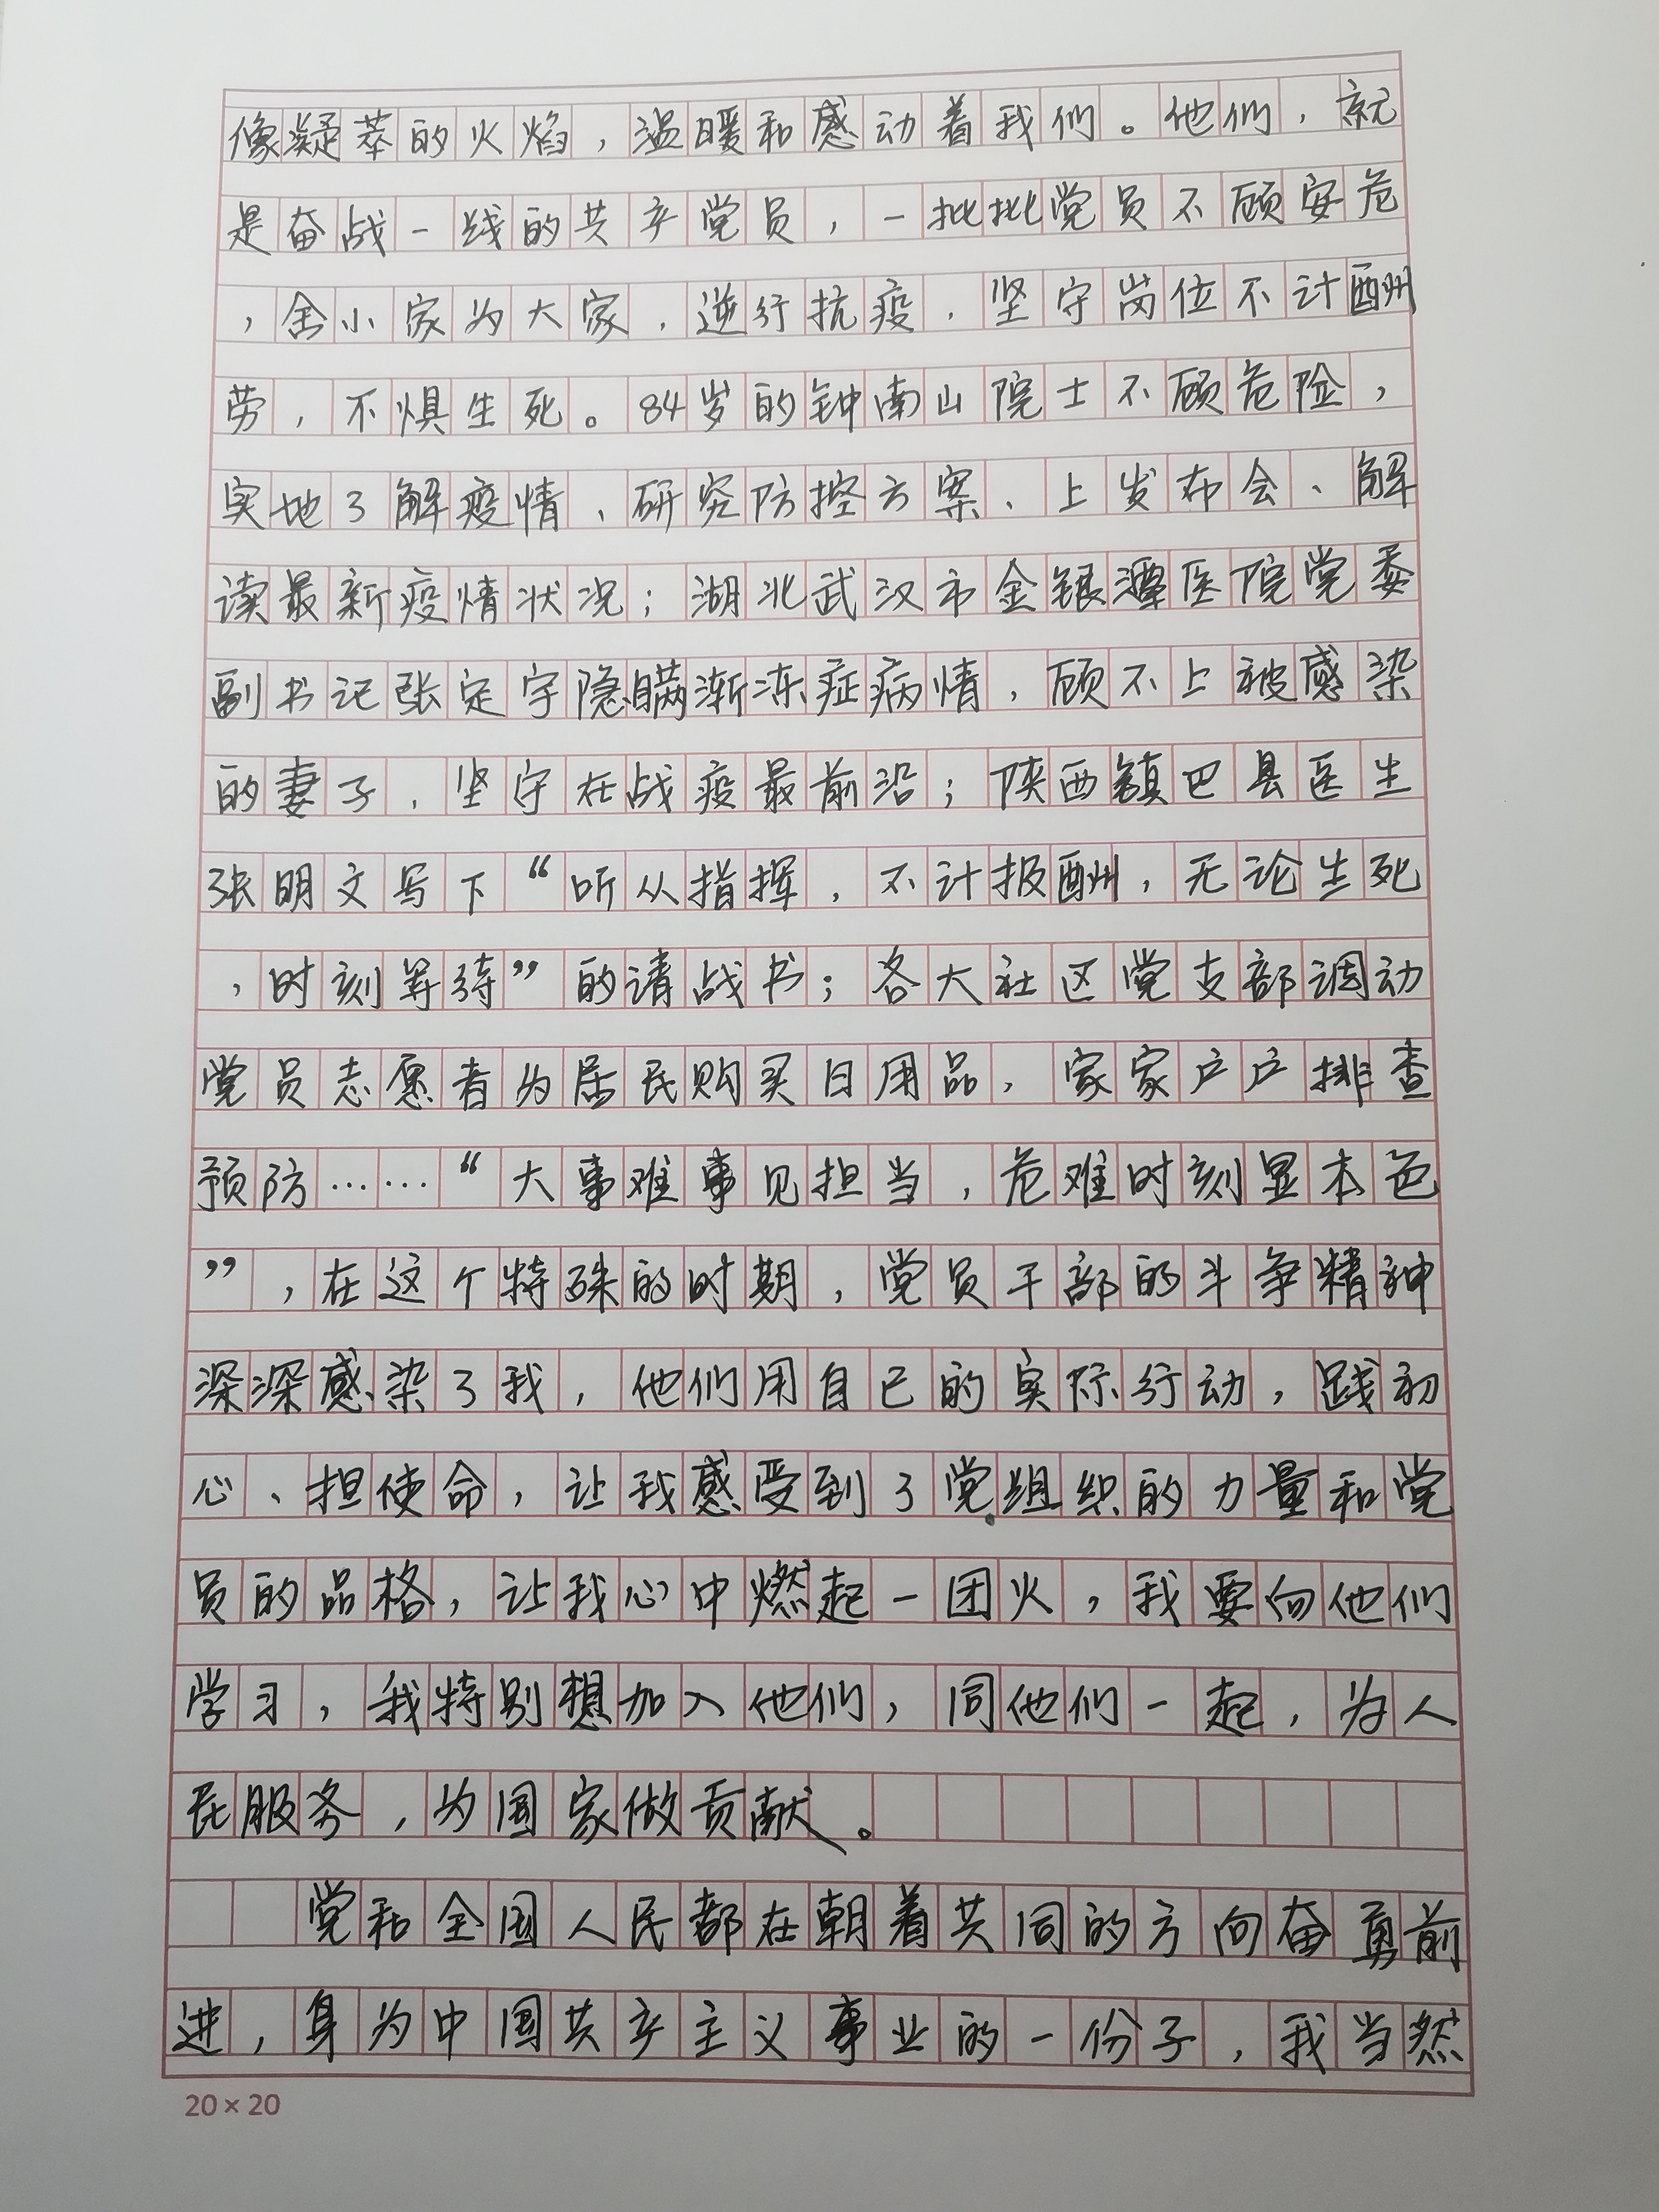 像凝萃的火焰，温暖和感动着我们。他们，就
是奋战一线的共产党员，一批批党员不顾安危
，舍小家为大家，逆行抗疫，坚守岗位不计酬
劳，不惧生死。84岁的钟南山院士不顾危险，
实地了解疫情、研究防控方案、上发布会、解
读最新疫情状况；湖北武汉市金银潭医院党委
副书记张定宇隐瞒渐冻症病情，顾不上被感染
的妻子，坚守在战疫最前沿；陕西镇巴县医生
张明文写下“听从指挥，不计报酬，无论生死
，时刻等待”的请战书；各大社区党支部调动
党员志愿者为居民购买日用品，家家户户排查
预防……“大事难事见担当，危难时刻显本色
”，在这个特殊的时期，党员干部的斗争精神
深深感染了我，他们用自己的实际行动，践初
心、担使命，让我感受到了党组织的力量和党
员的品格，让我心中燃起一团火，我要向他们
学习，我特别想加入他们，同他们一起，为人
民服务，为国家做贡献。
党和全国人民都在朝着共同的方向奋勇前
进，身为中国共产主义事业的一份子，我当然
20×20